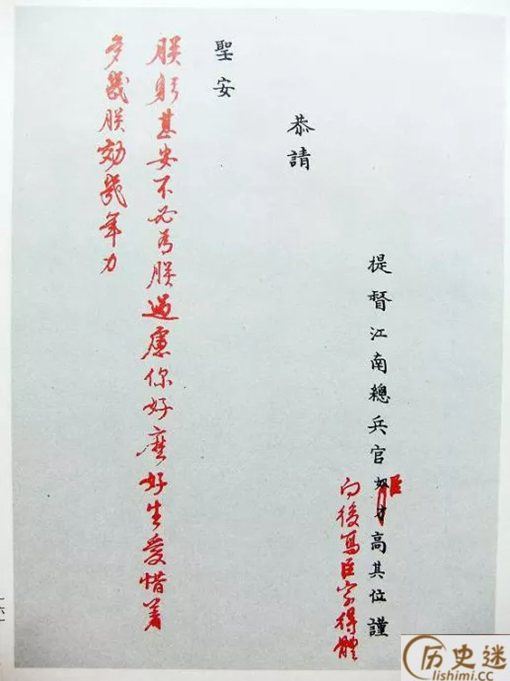 提督江南總兵官奴才高其位謹
臣
向後寫臣字得體
恭請
聖安
朕躬甚安不必為朕過慮你好麽好生愛惜着
多與朕効幾年力
历史迷
lishimi.cc